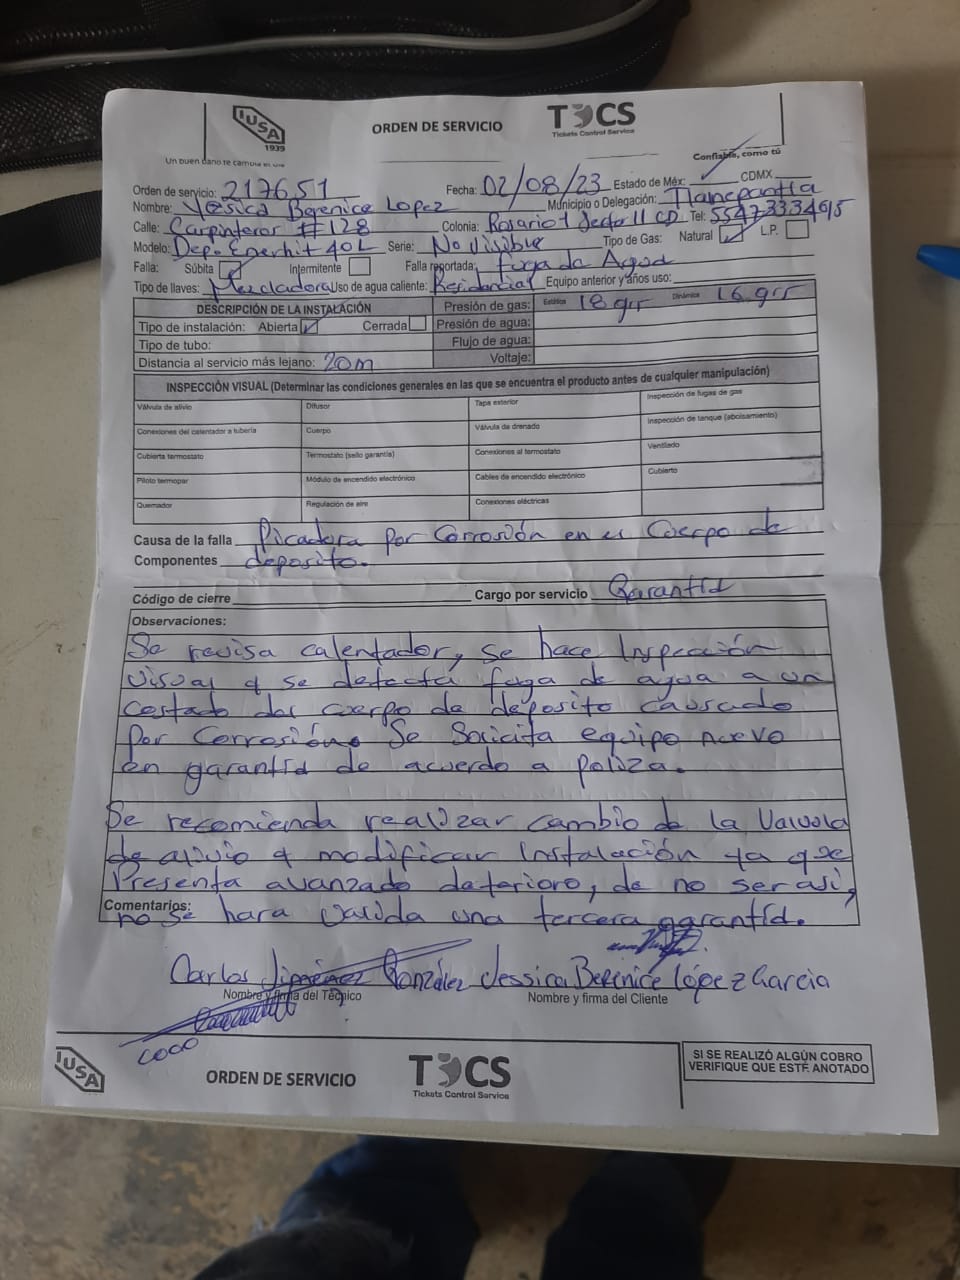 IUSA
1939
ORDEN DE SERVICIO
TCS
Tickets Control Service
Un buen baño te cambia el día
Confiable, como tú
Orden de servicio: 217651 Fecha: 02/08/23 Estado de Méx: ✓ CDMX
Nombre: Yesica Berenice Lopez Municipio o Delegación: Tlanepantla
Calle: Carpinteros #128 Colonia: Rosario 1 Secto II CD Tel:
Modelo: Dep. Enerhit 40L Serie: No visible Tipo de Gas: Natural ✓ L.P.
Falla: Súbita ✓ Intermitente Falla reportada: fuga de Agua
Tipo de llaves: Mezcladora Uso de agua caliente: Residencial Equipo anterior y años uso:
DESCRIPCIÓN DE LA INSTALACIÓN Presión de gas: Estática 18 grr Dinámica 16 grr
Tipo de instalación: Abierta ✓ Cerrada Presión de agua:
Tipo de tubo: Flujo de agua:
Distancia al servicio más lejano: 20m Voltaje:
INSPECCIÓN VISUAL (Determinar las condiciones generales en las que se encuentra el producto antes de cualquier manipulación)
Válvula de alivio Difusor Tapa exterior Inspección de fugas de gas
Conexiones del calentador a tubería Cuerpo Válvula de drenado Inspección de tanque (abolsamiento)
Cubierta termostato Termostato (sello garantía) Conexiones al termostato Ventilado
Piloto termopar Módulo de encendido electrónico Cables de encendido electrónico Cubierto
Quemador Regulación de aire Conexiones eléctricas
Causa de la falla Picadura por Corrosión en el Cuerpo de
Componentes deposito.
Código de cierre Cargo por servicio Garantía
Observaciones:
Se revisa calentador, se hace Inspección
visual y se detecta fuga de agua a un
costado del cuerpo de deposito causado
por Corrosión. Se Solicita equipo nuevo
en garantía de acuerdo a poliza.
Se recomienda realizar cambio de la Valvula
de alivio y modificar Instalación ya que
Presenta avanzado deterioro, de no ser asi,
Comentarios: no se hara valida una tercera garantía.
Carlos Jiménez González Jessica Berenice López Garcia
Nombre y firma del Técnico Nombre y firma del Cliente
IUSA
ORDEN DE SERVICIO
TCS
Tickets Control Service
SI SE REALIZÓ ALGÚN COBRO
VERIFIQUE QUE ESTÉ ANOTADO